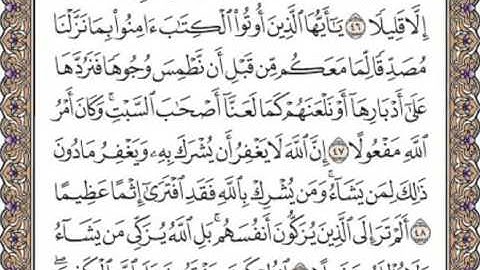 إِلَّا قَلِيلًا ٤٦ يَٰٓأَيُّهَا ٱلَّذِينَ أُوتُوا۟ ٱلْكِتَٰبَ ءَامِنُوا۟ بِمَا نَزَّلْنَا
مُصَدِّقًا لِّمَا مَعَكُم مِّن قَبْلِ أَن نَّطْمِسَ وُجُوهًا فَنَرُدَّهَا
عَلَىٰٓ أَدْبَارِهَآ أَوْ نَلْعَنَهُمْ كَمَا لَعَنَّآ أَصْحَٰبَ ٱلسَّبْتِ ۚ وَكَانَ أَمْرُ
ٱللَّهِ مَفْعُولًا ٤٧ إِنَّ ٱللَّهَ لَا يَغْفِرُ أَن يُشْرَكَ بِهِۦ وَيَغْفِرُ مَا دُونَ
ذَٰلِكَ لِمَن يَشَآءُ ۚ وَمَن يُشْرِكْ بِٱللَّهِ فَقَدِ ٱفْتَرَىٰٓ إِثْمًا عَظِيمًا
٤٨ أَلَمْ تَرَ إِلَى ٱلَّذِينَ يُزَكُّونَ أَنفُسَهُم ۚ بَلِ ٱللَّهُ يُزَكِّى مَن يَشَآءُ